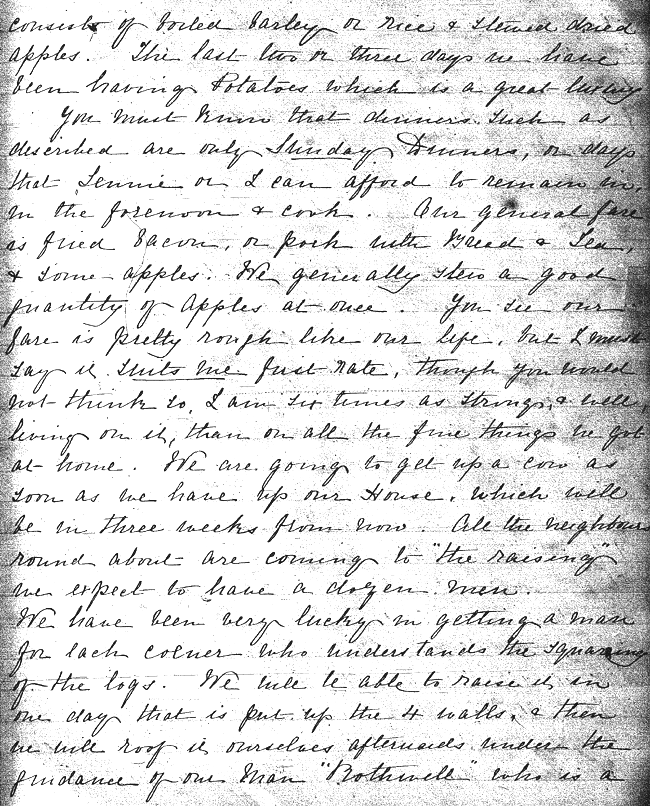 consists of boiled barley or rice & stewed dried
apples. The last two or three days we have
been having Potatoes which is a great luxury
You must know that dinners such as
described are only Sunday Dinners, or days
that Jennie or I can afford to remain in,
in the forenoon & cook. Our general fare
is fried bacon, or pork with Bread & Tea,
& some apples. We generally stew a good
quantity of apples at once. You see our
fare is pretty rough like our life, but I must
say it suits me first rate, though you would
not think so, I am six times as strong, & well,
living on it, than on all the fine things we got
at home. We are going to get up a cow as
soon as we have up our House, which will
be in three weeks from now. All the neighbours
round about are coming to "the raising"
we expect to have a dozen men.
We have been very lucky in getting a man
for each corner who understands the squaring
of the logs. We will be able to raise it in
one day that is put up the 4 walls, & then
we will roof it ourselves afterwards under the
guidance of our Man "Rothwell" who is a